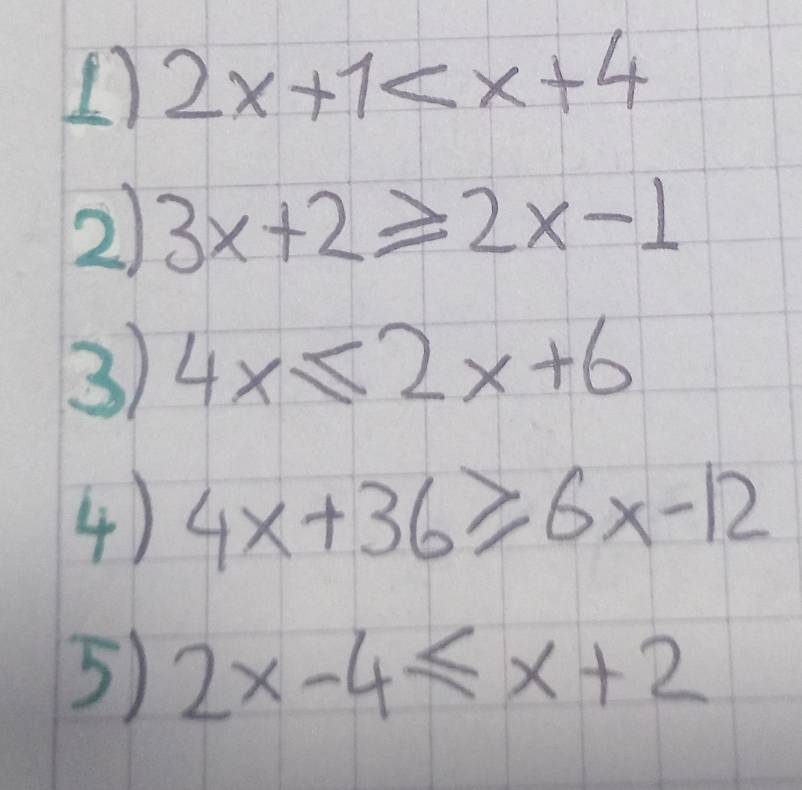 1) 2x+1<x+4
2) 3x+2⩾2x-1
3) 4x⩽2x+6
4) 4x+36⩾6x-12
5) 2x-4⩽x+2